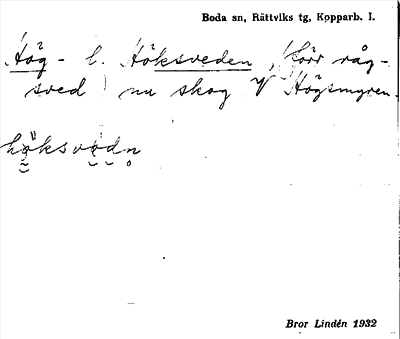 Boda sn, Rättviks tg, Kopparb. l.
Hög- l. Höksveden, förr råg-
sved, nu skog V Högsmyren.
höksvodn
Bror Lindén 1932